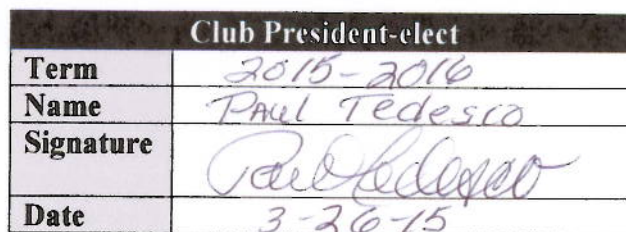 Club President-elect
Term 2015-2016
Name Paul Tedesco
Signature Paul Tedesco
Date 3-26-15